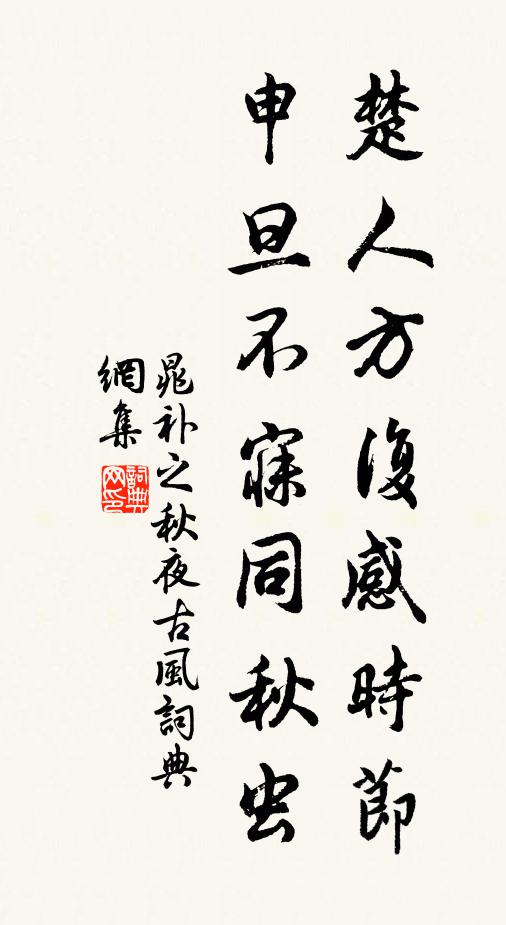 楚人方復感時節
申旦不寐同秋虫
晁补之秋夜古風詞典
網集
詞典網印